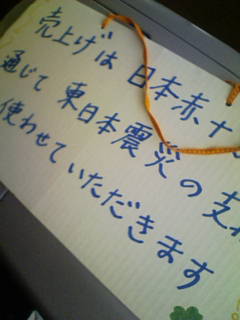 売上げは日本赤十
通じて東日本震災の支
使わせていただきます